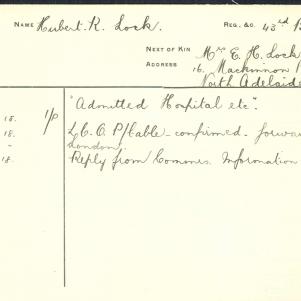 NAME Hubert K. Lock. REG. &c. 43rd
NEXT OF KIN Mrs E. H. Lock
ADDRESS 16. Mackinnon
North Adelaide
"Admitted Hospital etc".
18. 1/0
18. L.C.O. P/Cable confirmed. forwa
" London,
18. Reply from Commrs. Information